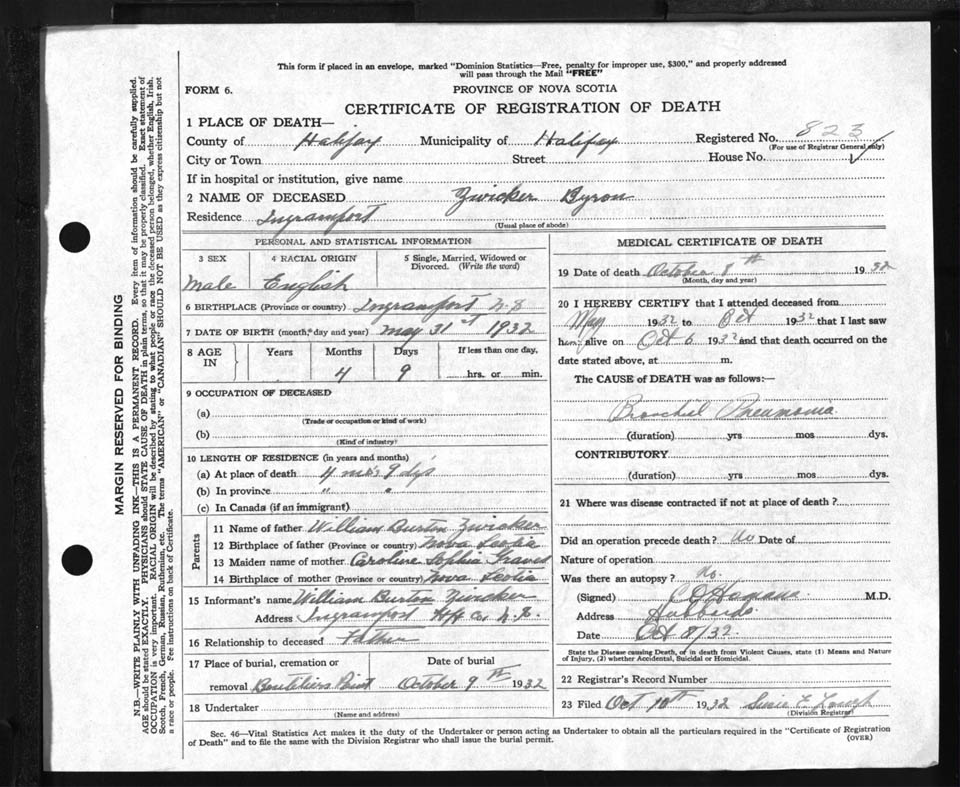 This form if placed in an envelope, marked "Dominion Statistics—Free, penalty for improper use, $300," and properly addressed
will pass through the Mail "FREE"
FORM 6.
PROVINCE OF NOVA SCOTIA
CERTIFICATE OF REGISTRATION OF DEATH
1 PLACE OF DEATH—
County of Halifax Municipality of Halifax Registered No. 823
(For use of Registrar General only)
City or Town Street House No.
If in hospital or institution, give name
2 NAME OF DECEASED Zwicker Byron
Residence Ingramport
(Usual place of abode)
PERSONAL AND STATISTICAL INFORMATION
3 SEX 4 RACIAL ORIGIN 5 Single, Married, Widowed or
Divorced. (Write the word)
Male English
6 BIRTHPLACE (Province or country) Ingramport N.S
7 DATE OF BIRTH (month, day and year) May 31st 1932
8 AGE IN Years Months Days If less than one day,
4 9 hrs. or min.
9 OCCUPATION OF DECEASED
(a)
(Trade or occupation or kind of work)
(b)
(Kind of industry)
10 LENGTH OF RESIDENCE (in years and months)
(a) At place of death 4 mo's 9 dys
(b) In province " "
(c) In Canada (if an immigrant)
Parents
11 Name of father William Burton Zwicker
12 Birthplace of father (Province or country) Nova Scotia
13 Maiden name of mother Caroline Sophia
14 Birthplace of mother (Province or country) Nova Scotia
15 Informant's name William Burton Zwicker
Address Ingramport Hfx Co. N.S.
16 Relationship to deceased Father
17 Place of burial, cremation or Date of burial
removal Boutiliers Point October 9th 1932
18 Undertaker
(Name and address)
MEDICAL CERTIFICATE OF DEATH
19 Date of death October 8th 1932
(Month, day and year)
20 I HEREBY CERTIFY that I attended deceased from
May 1932 to Oct 1932 that I last saw
him alive on Oct 6 1932 and that death occurred on the
date stated above, at m.
The CAUSE of DEATH was as follows:—
Bronchial Pneumonia
(duration) yrs mos dys.
CONTRIBUTORY
(duration) yrs mos dys.
21 Where was disease contracted if not at place of death?
Did an operation precede death? No Date of
Nature of operation
Was there an autopsy? No.
(Signed) M.D.
Address Hubbards
Date Oct 8/32.
State the Disease causing Death, or in death from Violent Causes, state (1) Means and Nature
of Injury, (2) whether Accidental, Suicidal or Homicidal.
22 Registrar's Record Number
23 Filed Oct 10th 1932 Susie E.
(Division Registrar)
Sec. 46—Vital Statistics Act makes it the duty of the Undertaker or person acting as Undertaker to obtain all the particulars required in the "Certificate of Registration
of Death" and to file the same with the Division Registrar who shall issue the burial permit.
(OVER)
MARGIN RESERVED FOR BINDING
N.B.—WRITE PLAINLY WITH UNFADING INK—THIS IS A PERMANENT RECORD. Every item of information should be carefully supplied.
AGE should be stated EXACTLY. PHYSICIANS should STATE CAUSE OF DEATH in plain terms, so that it may be properly classified. Exact statement of
OCCUPATION is very important. RACIAL ORIGIN will be described by stating to what people or race the deceased person belonged, whether English, Irish,
Scotch, French, German, Russian, Ruthenian, etc. The terms "AMERICAN" or "CANADIAN" SHOULD NOT BE USED as they express citizenship but not
a race or people. Fee instructions on back of Certificate.